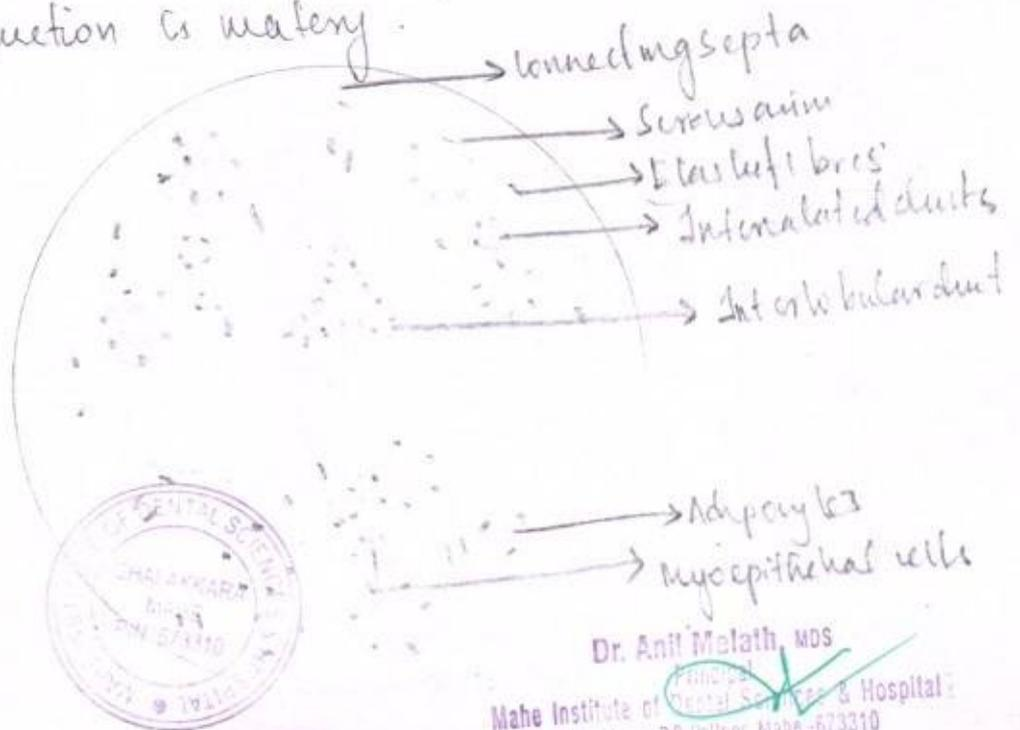 uction is watery.
Connecting septa
Serous acini
Elastic fibres
Intercalated ducts
Interlobular duct
Adipocytes
Myoepithelial cells
OF DENTAL SCIENCES & HOSPITAL
CHALAKKARA
MAHE
PIN 673310
Dr. Anil Melath, MDS
Principal
Mahe Institute of Dental Sciences & Hospital
Mahe -673310